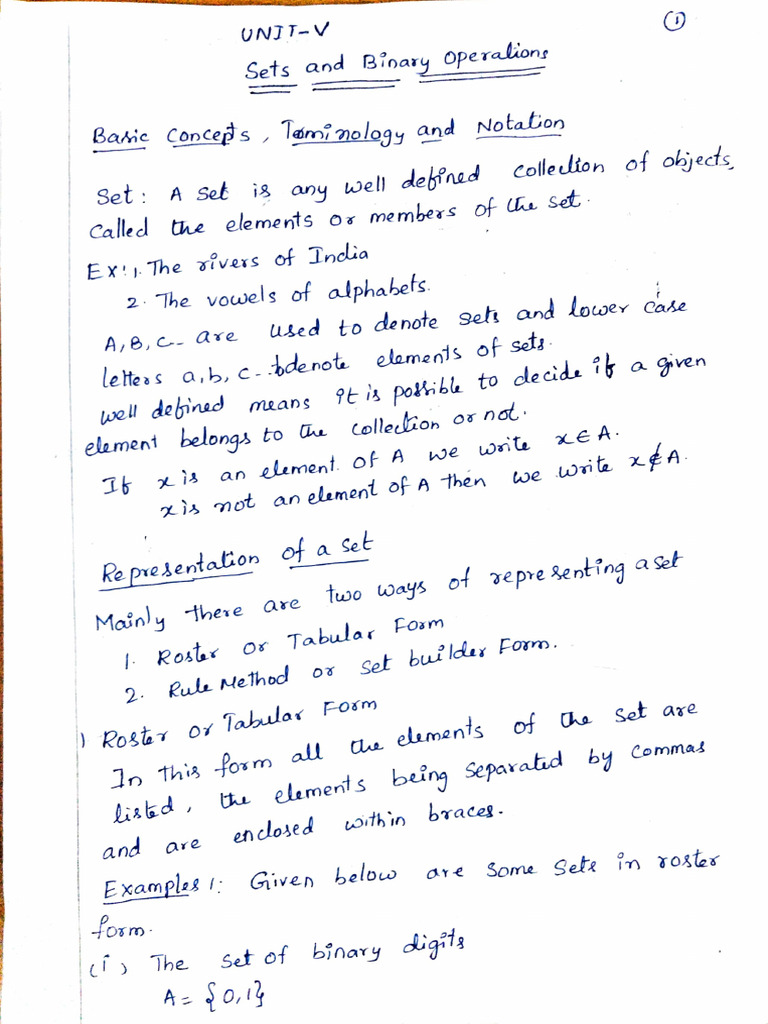 1
UNIT-V
Sets and Binary Operations
Basic Concepts, Terminology and Notation
Set: A set is any well defined collection of objects,
called the elements or members of the set.
Ex: 1. The rivers of India
2. The vowels of alphabets.
A, B, C- are used to denote sets and lower case
letters a, b, c - to denote elements of sets.
well defined means it is possible to decide if a given
element belongs to the collection or not.
If x is an element of A we write x∈A.
x is not an element of A then we write x∉A.
Representation of a set
Mainly there are two ways of representing a set
1. Roster or Tabular Form
2. Rule Method or set builder Form.
1) Roster or Tabular Form
In this form all the elements of the set are
listed, the elements being separated by commas
and are enclosed within braces.
Examples 1: Given below are some sets in roster
form.
(i) The set of binary digits
A = {0,1}